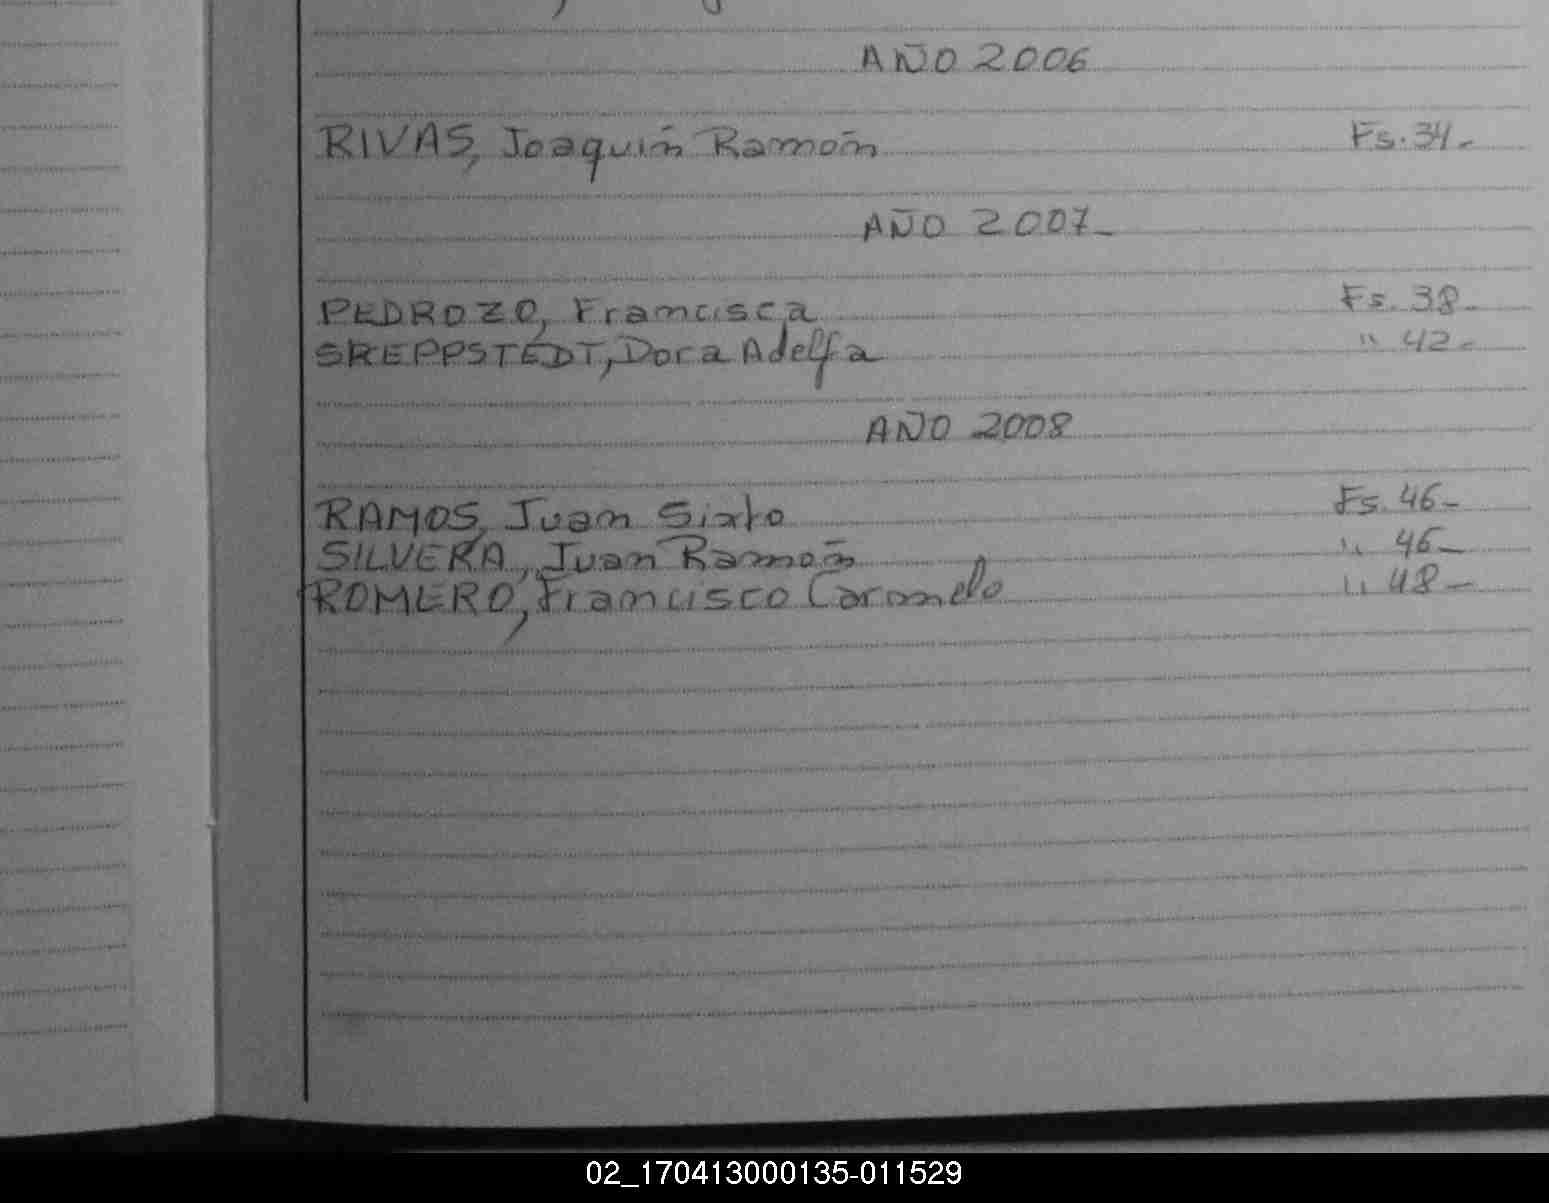 AÑO 2006
RIVAS, Joaquín Ramón Fs. 34-
AÑO 2007-
PEDROZO, Francisca Fs. 38-
SREPPSTEDT, Dora Adelfa " 42-
AÑO 2008
RAMOS, Juan Sixto Fs. 46-
SILVERA, Juan Ramón " 46-
ROMERO, Francisco Carmelo " 48-
02_170413000135-011529